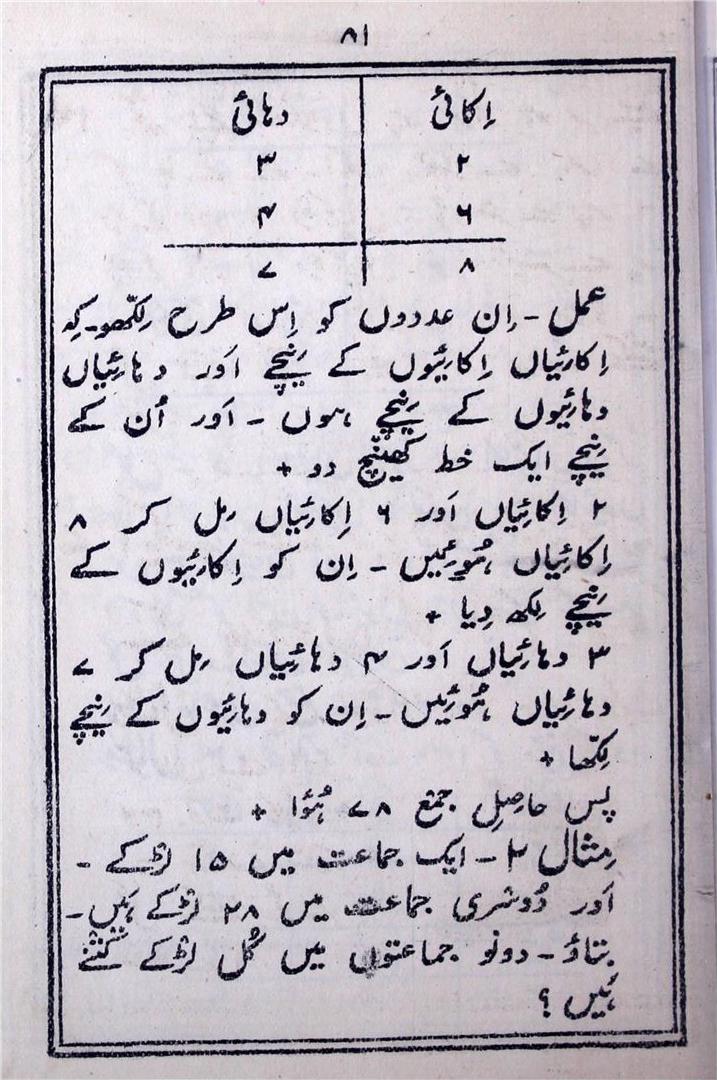 ۸۱
اِکائی دہائی
۲ ۳
۶ ۴
۸ ۷
عمل۔ اِن عددوں کو اِس طرح لِکّھو۔ کہ
اِکائِیاں اِکائِیوں کے نِیچے اَور دہائِیاں
دہائِیوں کے نِیچے ہوں۔ اَور اُن کے
نِیچے ایک خط کھینچ دو +
۲ اِکائِیاں اَور ۶ اِکائِیاں مِل کر ۸
اِکائِیاں ہُوئیں۔ اِن کو اِکائِیوں کے
نِیچے لِکھ دِیا +
۳ دہائِیاں اَور ۴ دہائِیاں مِل کر ۷
دہائِیاں ہُوئیں۔ اِن کو دہائِیوں کے نِیچے
لِکّھا +
پس حاصِلِ جمع ۷۸ ہُؤا +
مِثال ۲۔ ایک جماعت میں ۱۵ لڑکے۔
اَور دُوسْری جماعت میں ۲۸ لڑکے ہَیں۔
بتاؤ۔ دونو جماعتوں میں کُل لڑکے کتْنے
ہَیں ؟